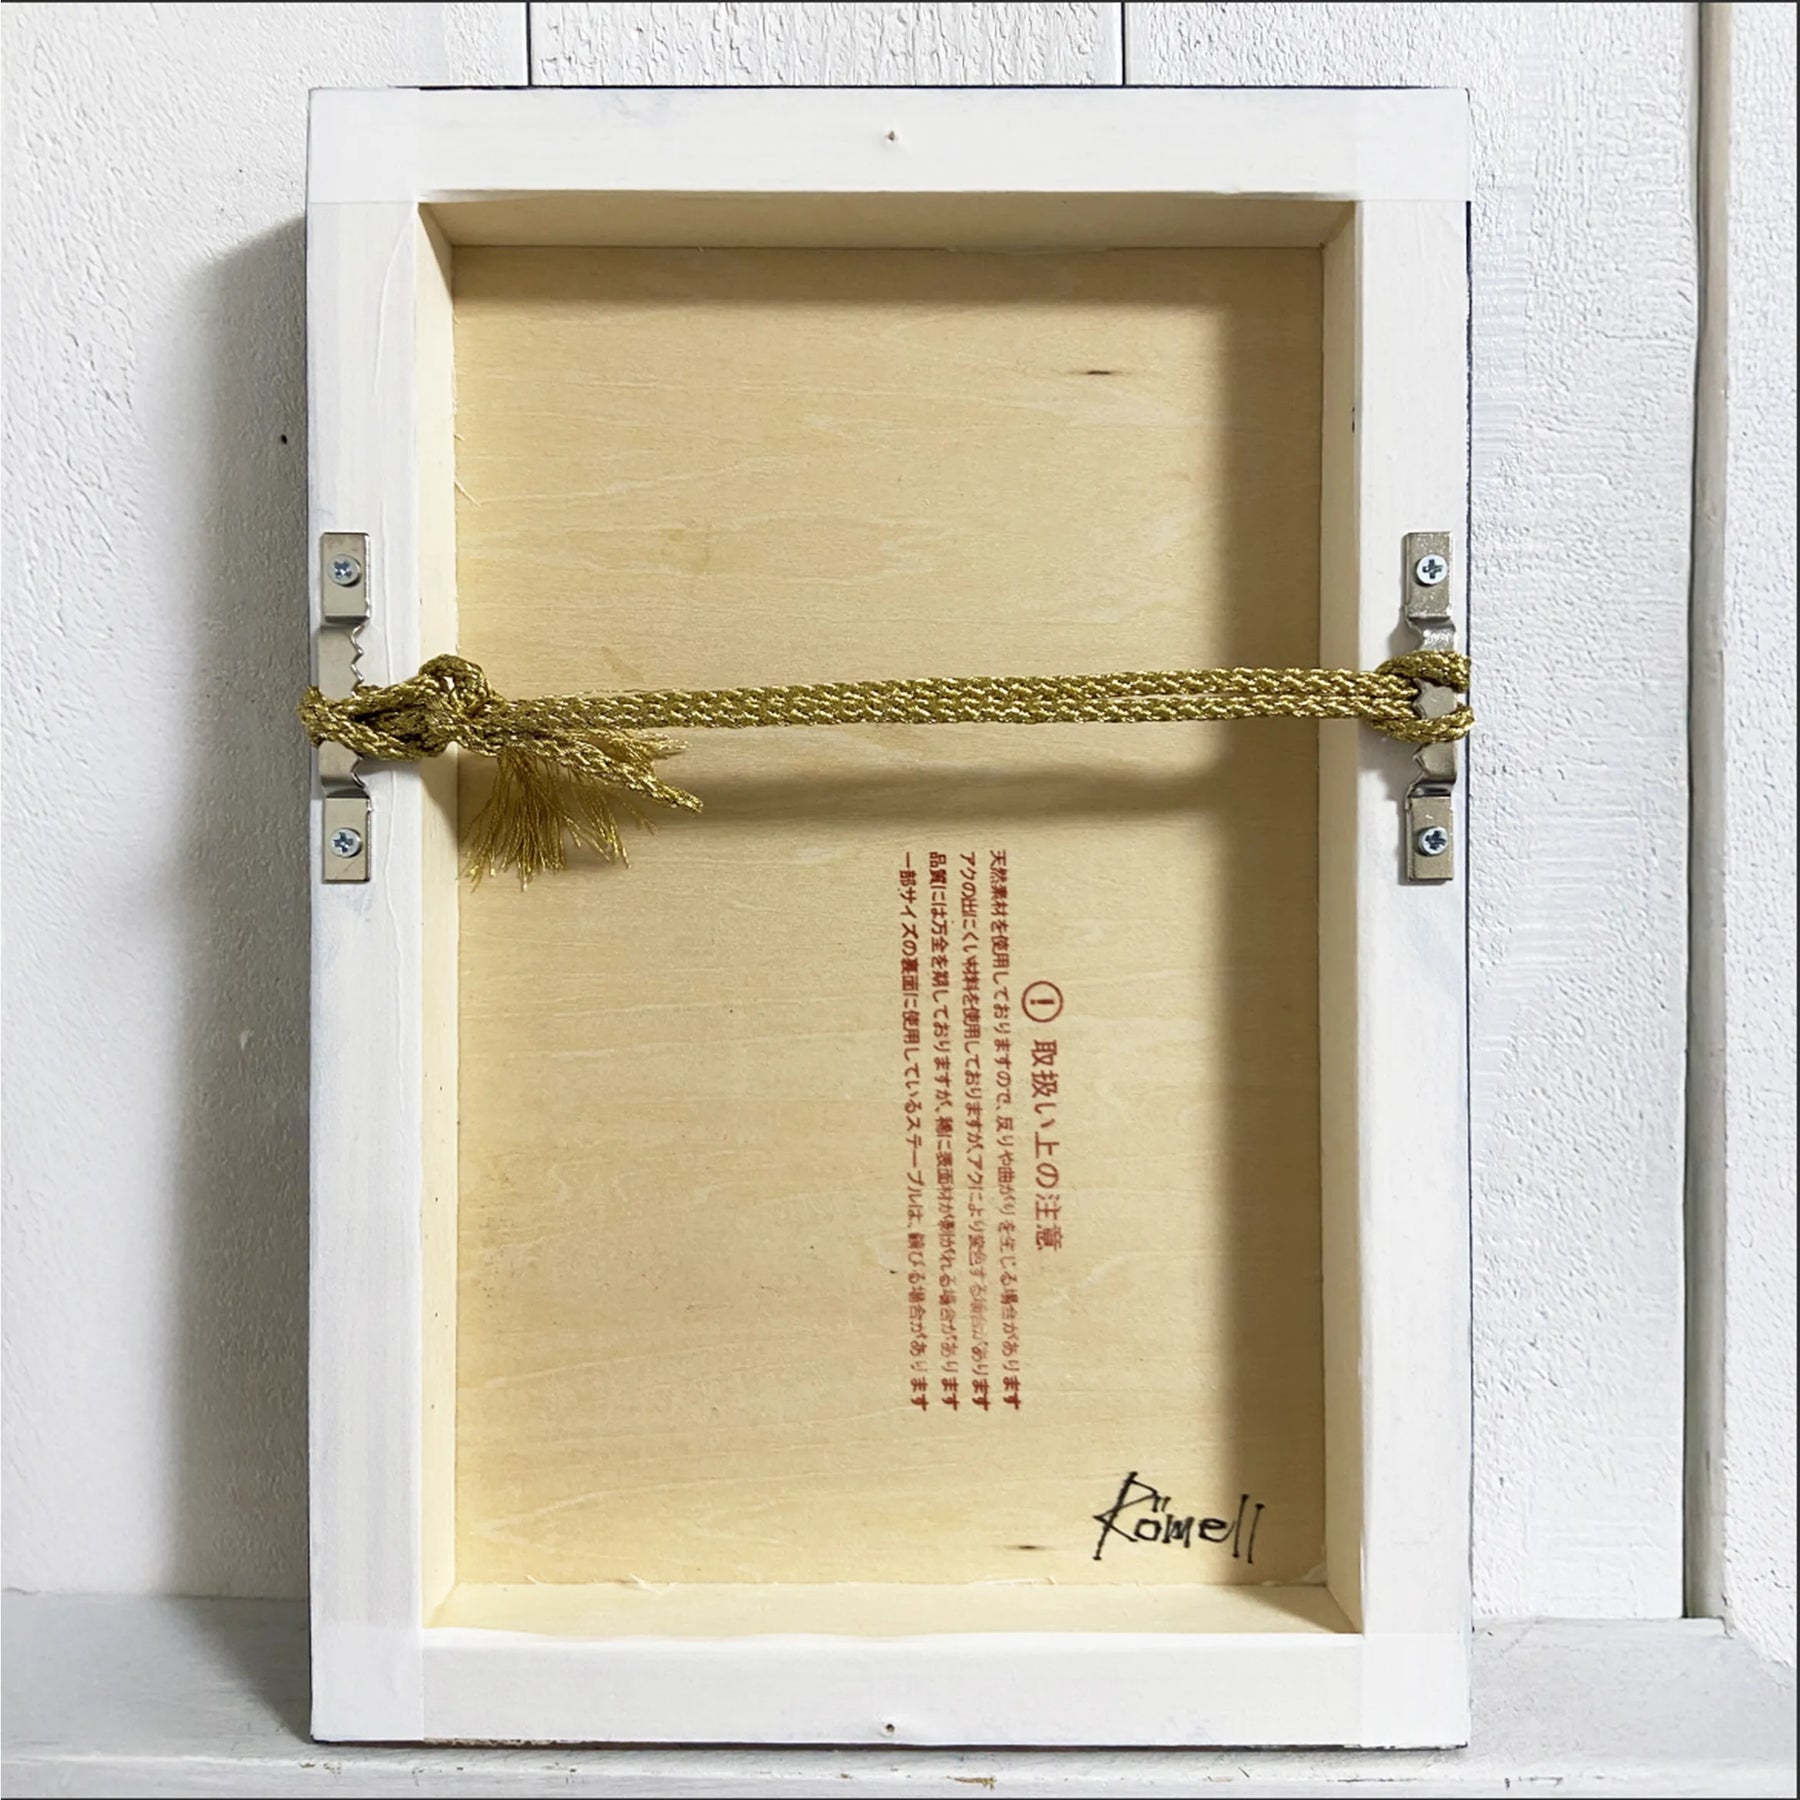 ! 取扱い上の注意
天然素材を使用しておりますので、反りや曲がりを生じる場合があります
アクの出にくい材料を使用しておりますが、アクにより変色する場合があります
品質には万全を期しておりますが、稀に表面材が剥がれる場合があります
一部サイズの裏面に使用しているステープルは、錆びる場合があります
Römell